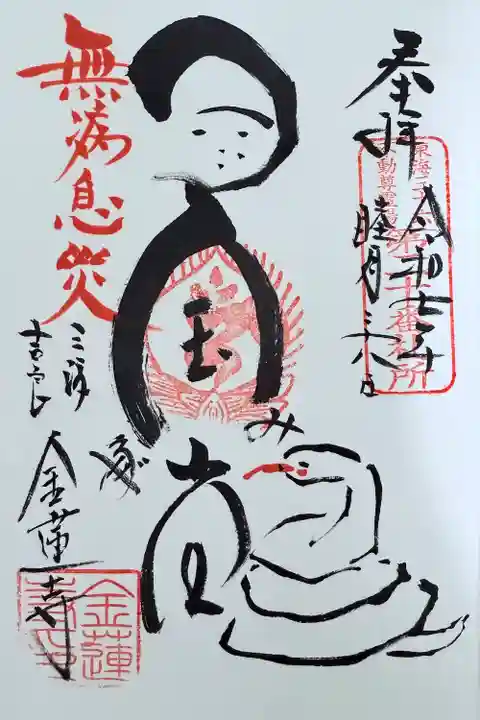 奉拝
令和七年
睦月
東海三十六
不動尊霊場
十番札所
国
み
堂
無病息災
三河
吉良
金蓮寺
金蓮
寺印